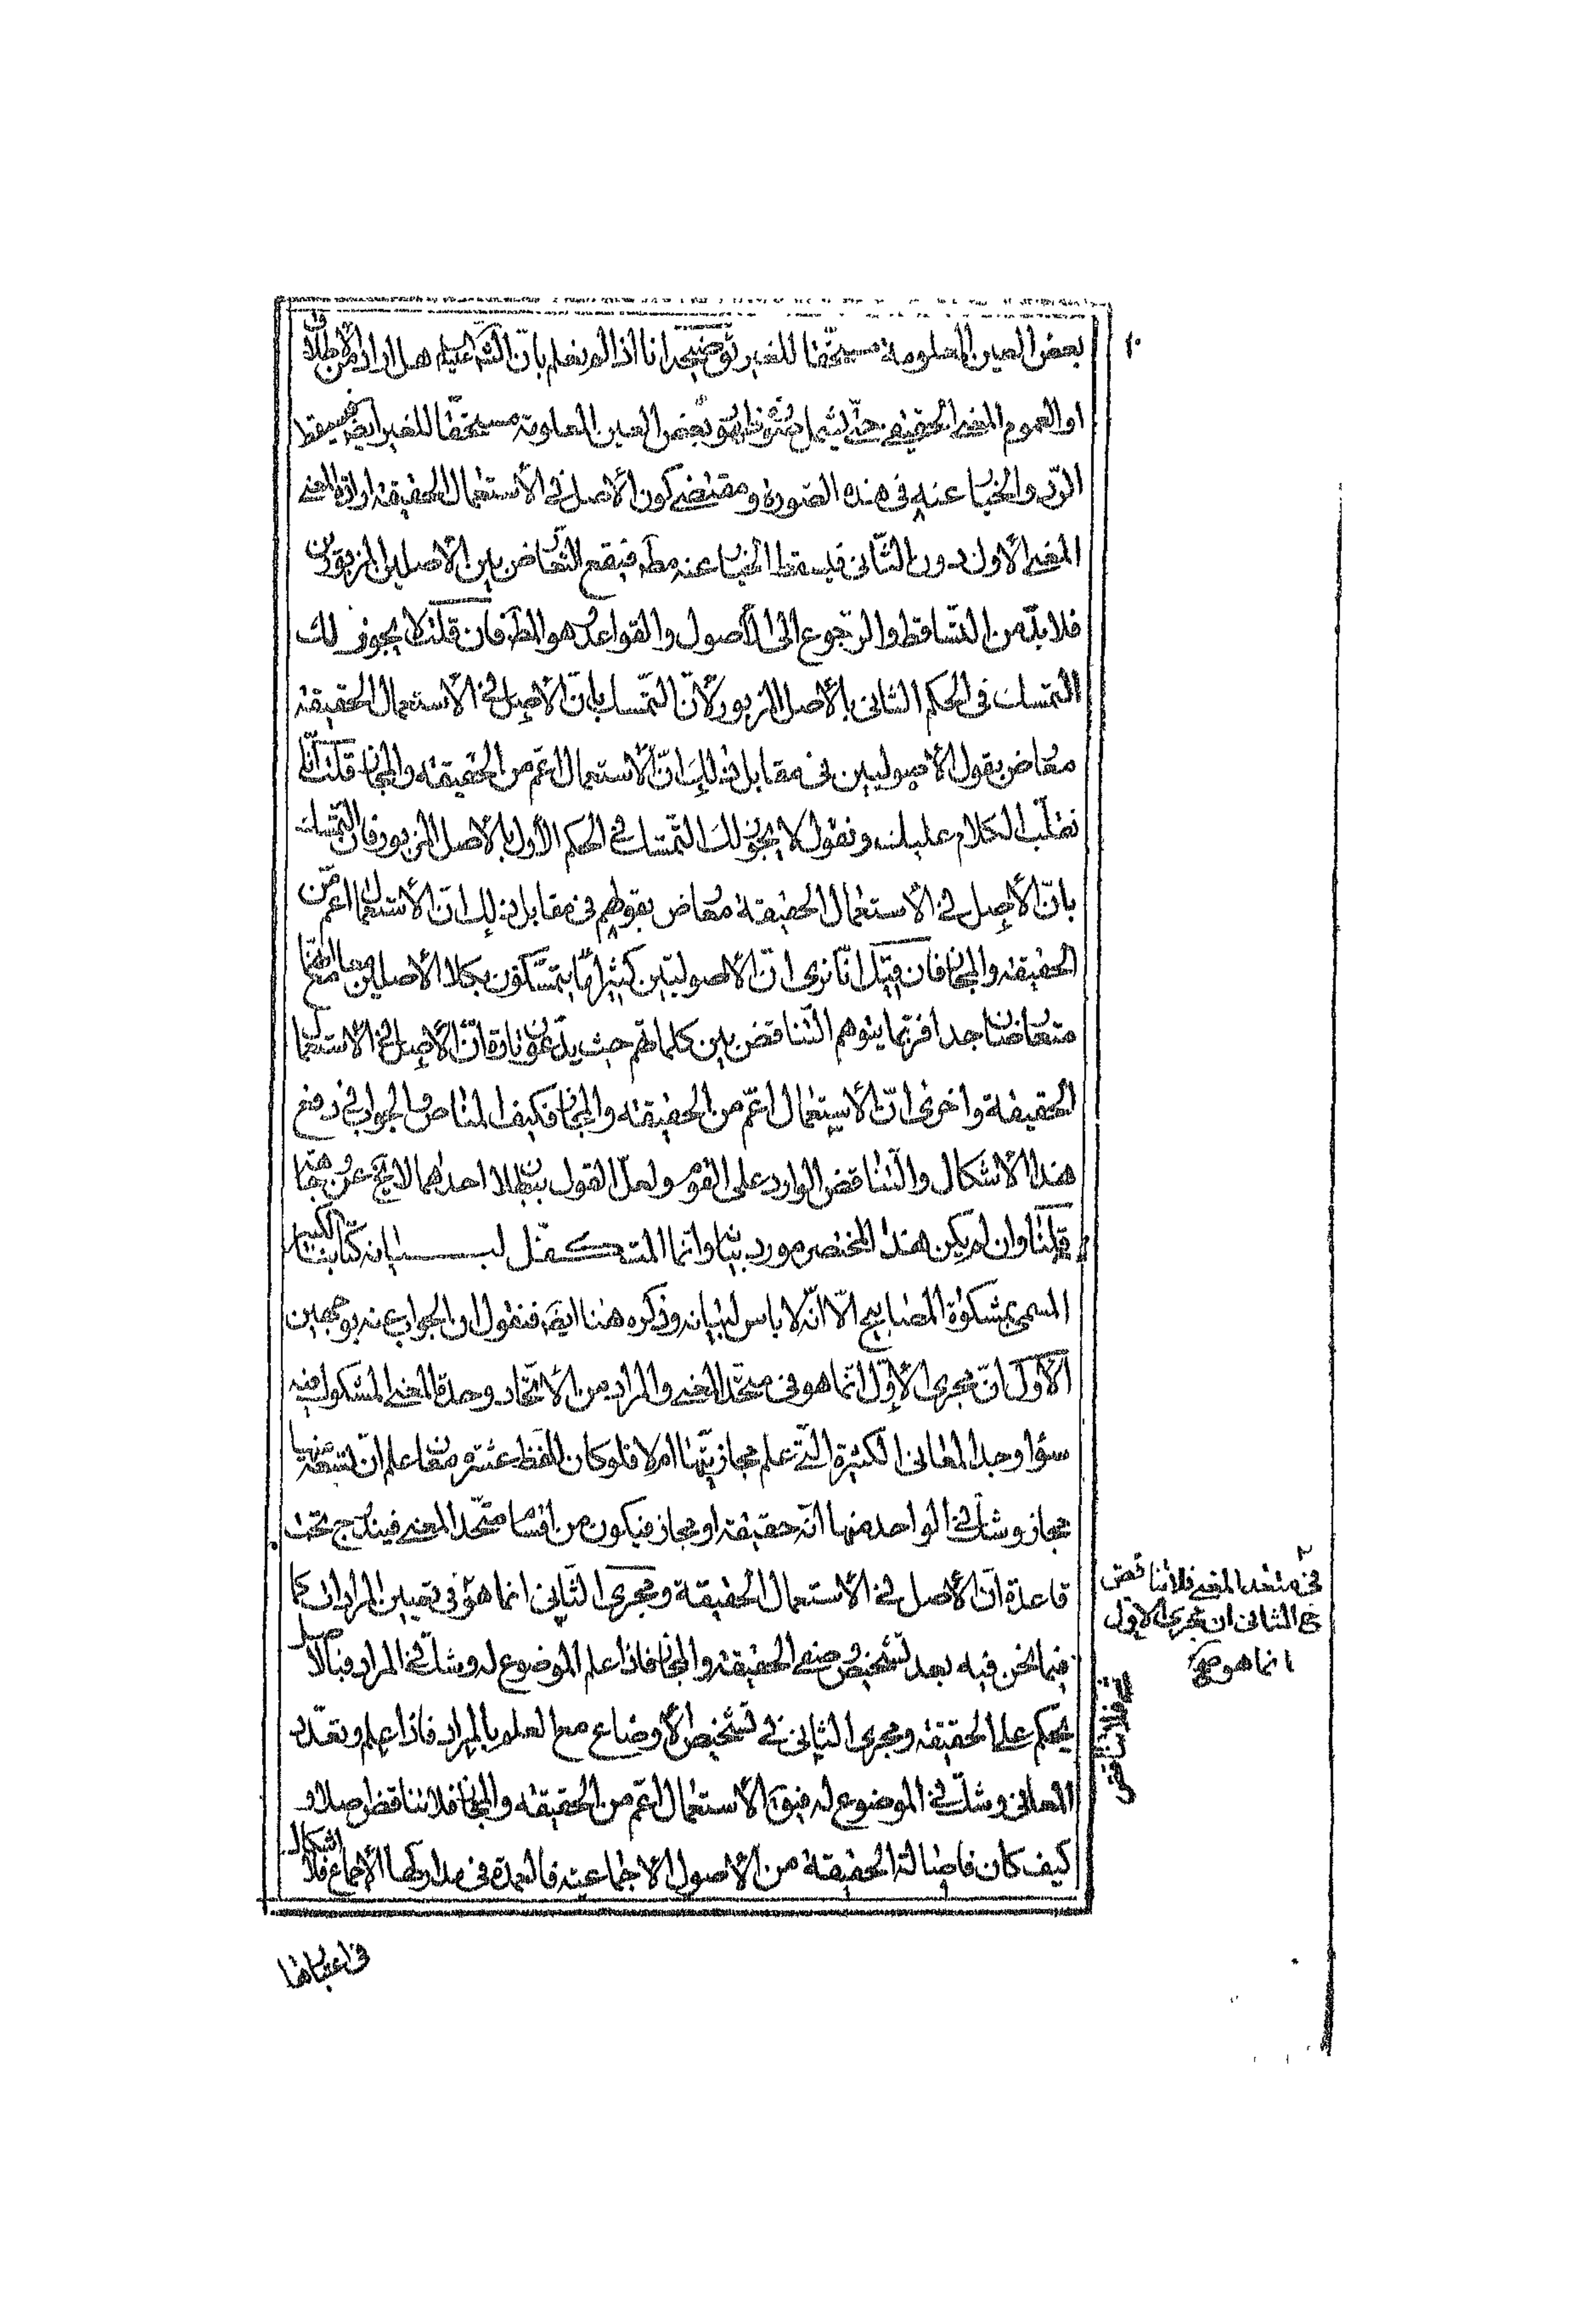 ١٠
بعض العين المعلومة مستحقّا للغير توضيحه انا اذا لم نعلم بانّ الشّ عليه هل اراد من الاطلاق
او العموم المعنى الحقيقى حتّى يشمل بعض العين المعلومة مستحقّا للغير ايضا فيسقط
الرّد والخيا عنه فى هذه الصّورة ومقتضى كون الاصل فى الاستعمال الحقيقة ارادة المعنى
المعنى الاول دون الثّانى فليسقط الخيار عنه مطه فيقع التّعارض بين الاصلين المزبورين
فلا بدّ من التّساقط والرّجوع الى الاصول والقواعد هو المط فان قلت لا يجوز لك
التمسك فى الحكم الثانى بالاصل المزبور لانّ التمسك بانّ الاصل فى الاستعمال الحقيقة
معارض بقول الاصوليين فى مقابل ذلك انّ الاستعمال اعم من الحقيقه والمجاز قلنا انّا
نقلّب الكلام عليك ونقول لا يجوز لك التّمسّك فى الحكم الاول بالاصل المزبور فان التمسك
بانّ الاصل فى الاستعمال الحقيقة معارض بقولهم فى مقابل ذلك انّ الاستعمال اعم من
الحقيقه والمجاز فان قيل انّا نرى انّ الاصوليّين كثيرا ما يتمسّكون بكلا الاصلين مع انهما
متعارضان جدا فربّما يتوهم التّناقض بين كلماتهم حيث يدّعون تارة انّ الاصل فى الاستعمال
الحقيقة واخرى انّ الاستعمال اعمّ من الحقيقه والمجاز فكيف المناص والجواب فى دفع
هذا الاشكال والتّناقض الوارد على القوم ولعلّ القول ببطلان احدهما لا يخ عن وجه
قلنا وان لم يكن هذا المختصر مورد بيانه وانّما المتكفّل لبيانه كتابنا الكبير
المسمى بمشكوة المصابيح الّا انّه لا باس لبيانه وذكره هنا ايضا فنقول ان الجواب عنه بوجهين
الاوّل انّ مجرى الاوّل انّما هو فى متحد المعنى والمراد من الاتّحاد وحدة المعنى المشكوك فيه
سواء وجد المعانى الكثيرة الّتى علم مجازيّتها ام لا فلو كان للفظ عشرة معان علم انّ تسعة منها
مجاز وشك فى الواحد منها انّه حقيقة او مجاز فيكون من اقسام متّحد المعنى فيندرج تحت
قاعدة انّ الاصل فى الاستعمال الحقيقة ومجرى الثّانى انما هو فى تعيين المرادات كما
فيما نحن فيه بعد تشخيص وضعى الحقيقة والمجاز فاذا علم الموضوع له وشك فى المراد فبالاصل
يحكم على الحقيقه ومجرى الثانى فى تشخيص الاوضاع مع العلم بالمراد فاذا علم وتعدّد
المعانى وشكّ فى الموضوع له فيق الاستعمال اعم من الحقيقه والمجاز فلا تناقض اصلا و
كيف كان فاصالة الحقيقة من الاصول الاجماعيّة فالعمدة فى مداركها الاجماع فلا اشكال
فى اعتبارها
فى متعدد المعنى فلا تناقض
الثانى ان مجرى الاول
انما هو
فلا تناقض